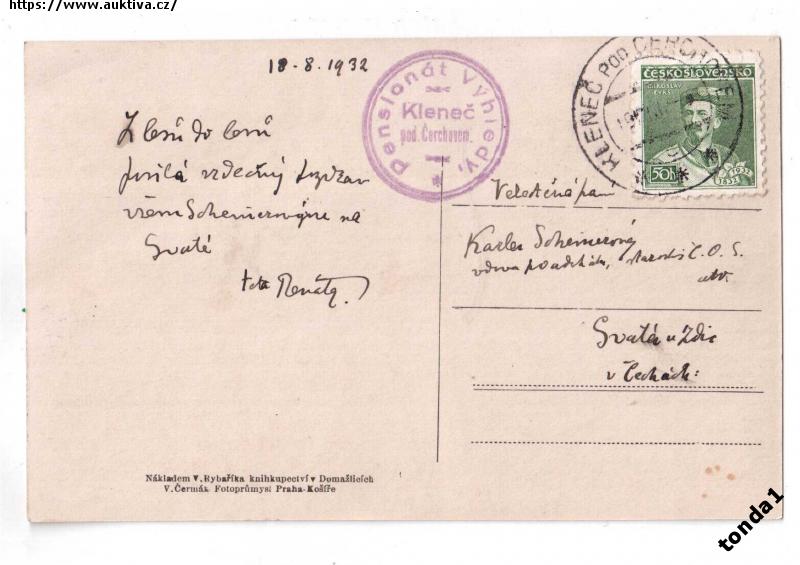 https://www.auktiva.cz/
18.-8.1932
Pensionát Výhledy,
Kleneč
pod Čerchovem
KLENEČ POD ČERCHOVEM
ČESKOSLOVENSKO
MIROSLAV TYRŠ
50h
1832 1932
Z lesů do lesů
posílá vděčný pozdrav
všem Scheinerovým na
Svaté
teta Renáta.
Velectěná paní
Karla Scheinerová
vdova po advokátu, starosti Č.O.S.
atd.
Svatá u Zdic
v Čechách:
Nákladem V. Rybaříka knihkupectví v Domažlicích
V. Čermák Fotoprůmysl Praha-Košíře
tonda1